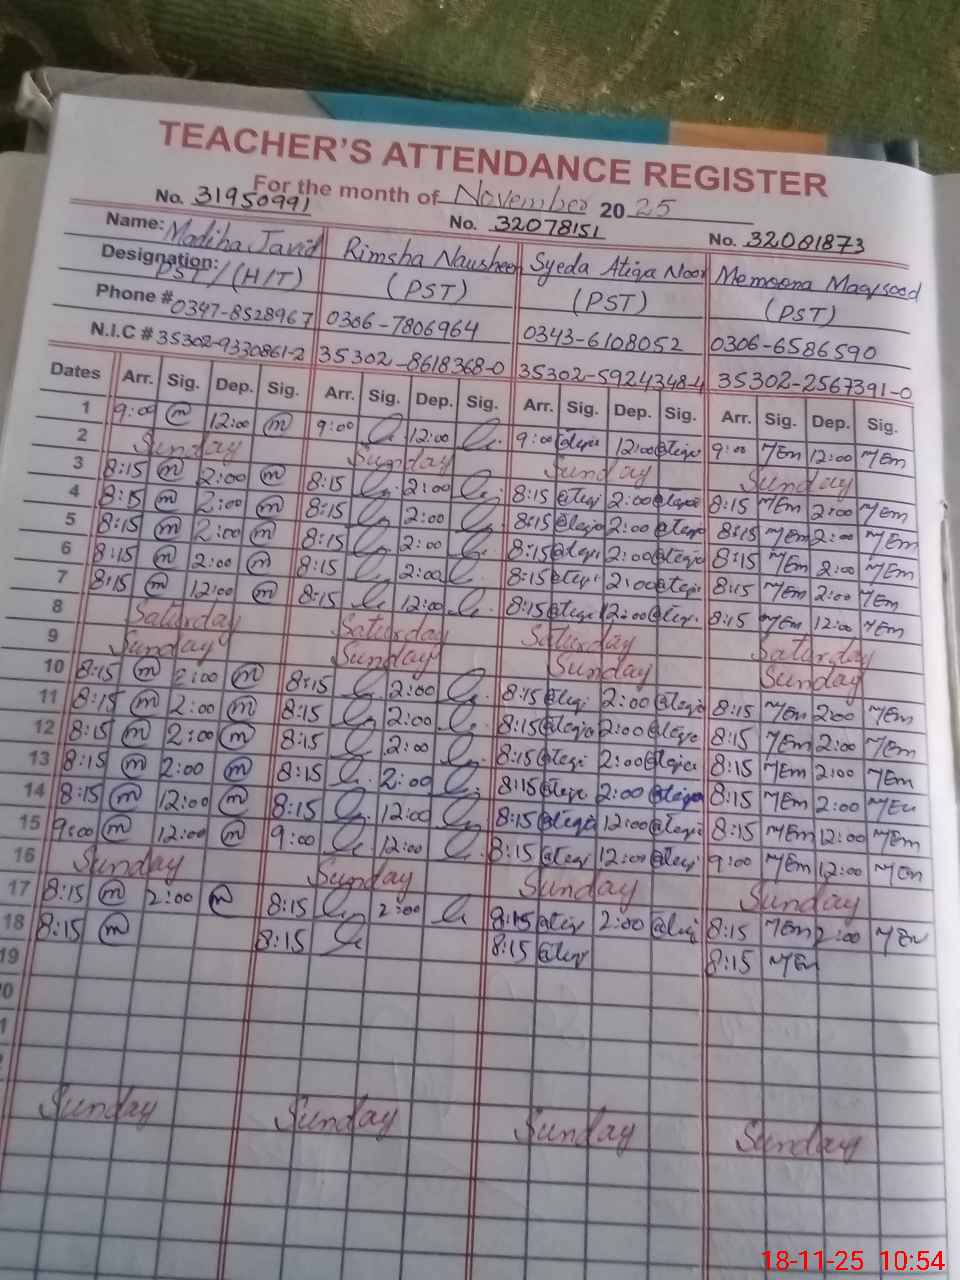 TEACHER'S ATTENDANCE REGISTER
For the month of November 2025
No. 31950991 No. 32078151 No. 32081873
Name: Madiha Javid Rimsha Nausheen Syeda Atiqa Noor Memoona Maqsood
Designation: PST/(H/T) (PST) (PST) (PST)
Phone # 0347-8528967 0306-7806964 0343-6108052 0306-6586590
N.I.C # 35302-9330861-2 35302-8618368-0 35302-5924348-4 35302-2567391-0
Dates Arr. Sig. Dep. Sig. Arr. Sig. Dep. Sig. Arr. Sig. Dep. Sig. Arr. Sig. Dep. Sig.
1 9:00 m 12:00 m 9:00 12:00 9:00 12:00 9:00 MEm 12:00 MEm
2 Sunday Sunday Sunday Sunday
3 8:15 m 2:00 m 8:15 2:00 8:15 2:00 8:15 MEm 2:00 MEm
4 8:15 m 2:00 m 8:15 2:00 8:15 2:00 8:15 MEm 2:00 MEm
5 8:15 m 2:00 m 8:15 2:00 8:15 2:00 8:15 MEm 2:00 MEm
6 8:15 m 2:00 m 8:15 2:00 8:15 2:00 8:15 MEm 2:00 MEm
7 8:15 m 12:00 m 8:15 12:00 8:15 12:00 8:15 MEm 12:00 MEm
8 Saturday Saturday Saturday Saturday
9 Sunday Sunday Sunday Sunday
10 8:15 m 2:00 m 8:15 2:00 8:15 2:00 8:15 MEm 2:00 MEm
11 8:15 m 2:00 m 8:15 2:00 8:15 2:00 8:15 MEm 2:00 MEm
12 8:15 m 2:00 m 8:15 2:00 8:15 2:00 8:15 MEm 2:00 MEm
13 8:15 m 2:00 m 8:15 2:00 8:15 2:00 8:15 MEm 2:00 MEm
14 8:15 m 12:00 m 8:15 12:00 8:15 12:00 8:15 MEm 12:00 MEm
15 9:00 m 12:00 m 9:00 12:00 8:15 12:00 9:00 MEm 12:00 MEm
16 Sunday Sunday Sunday Sunday
17 8:15 m 2:00 m 8:15 2:00 8:15 2:00 8:15 MEm 2:00 MEm
18 8:15 m 8:15 8:15 8:15 MEm
19
0
1
2
Sunday Sunday Sunday Sunday
18-11-25 10:54